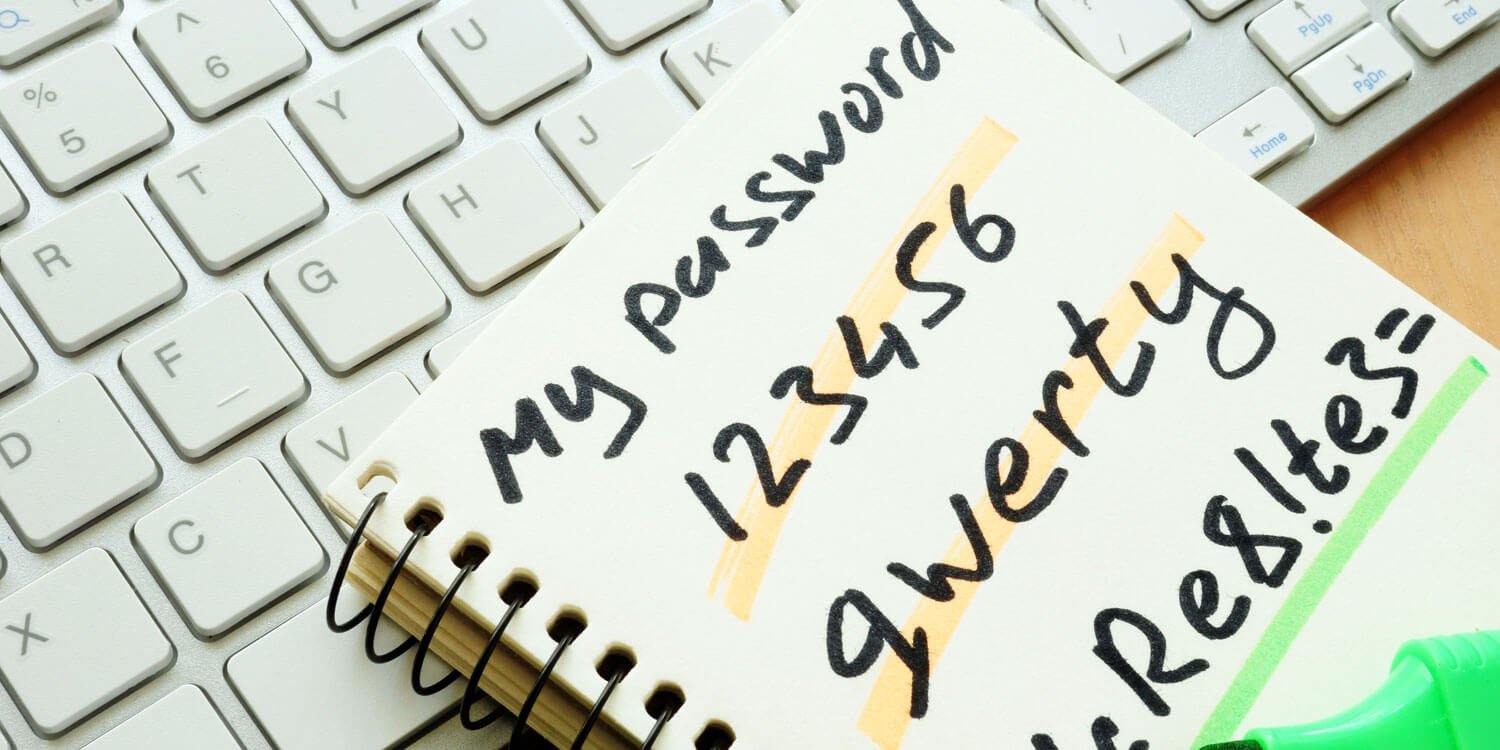 My password
123456
qwerty
Re8!te3=
%
5
^
6
R
T
Y
U
D
F
G
H
J
K
X
C
V
/
PgUp
PgDn
Home
End